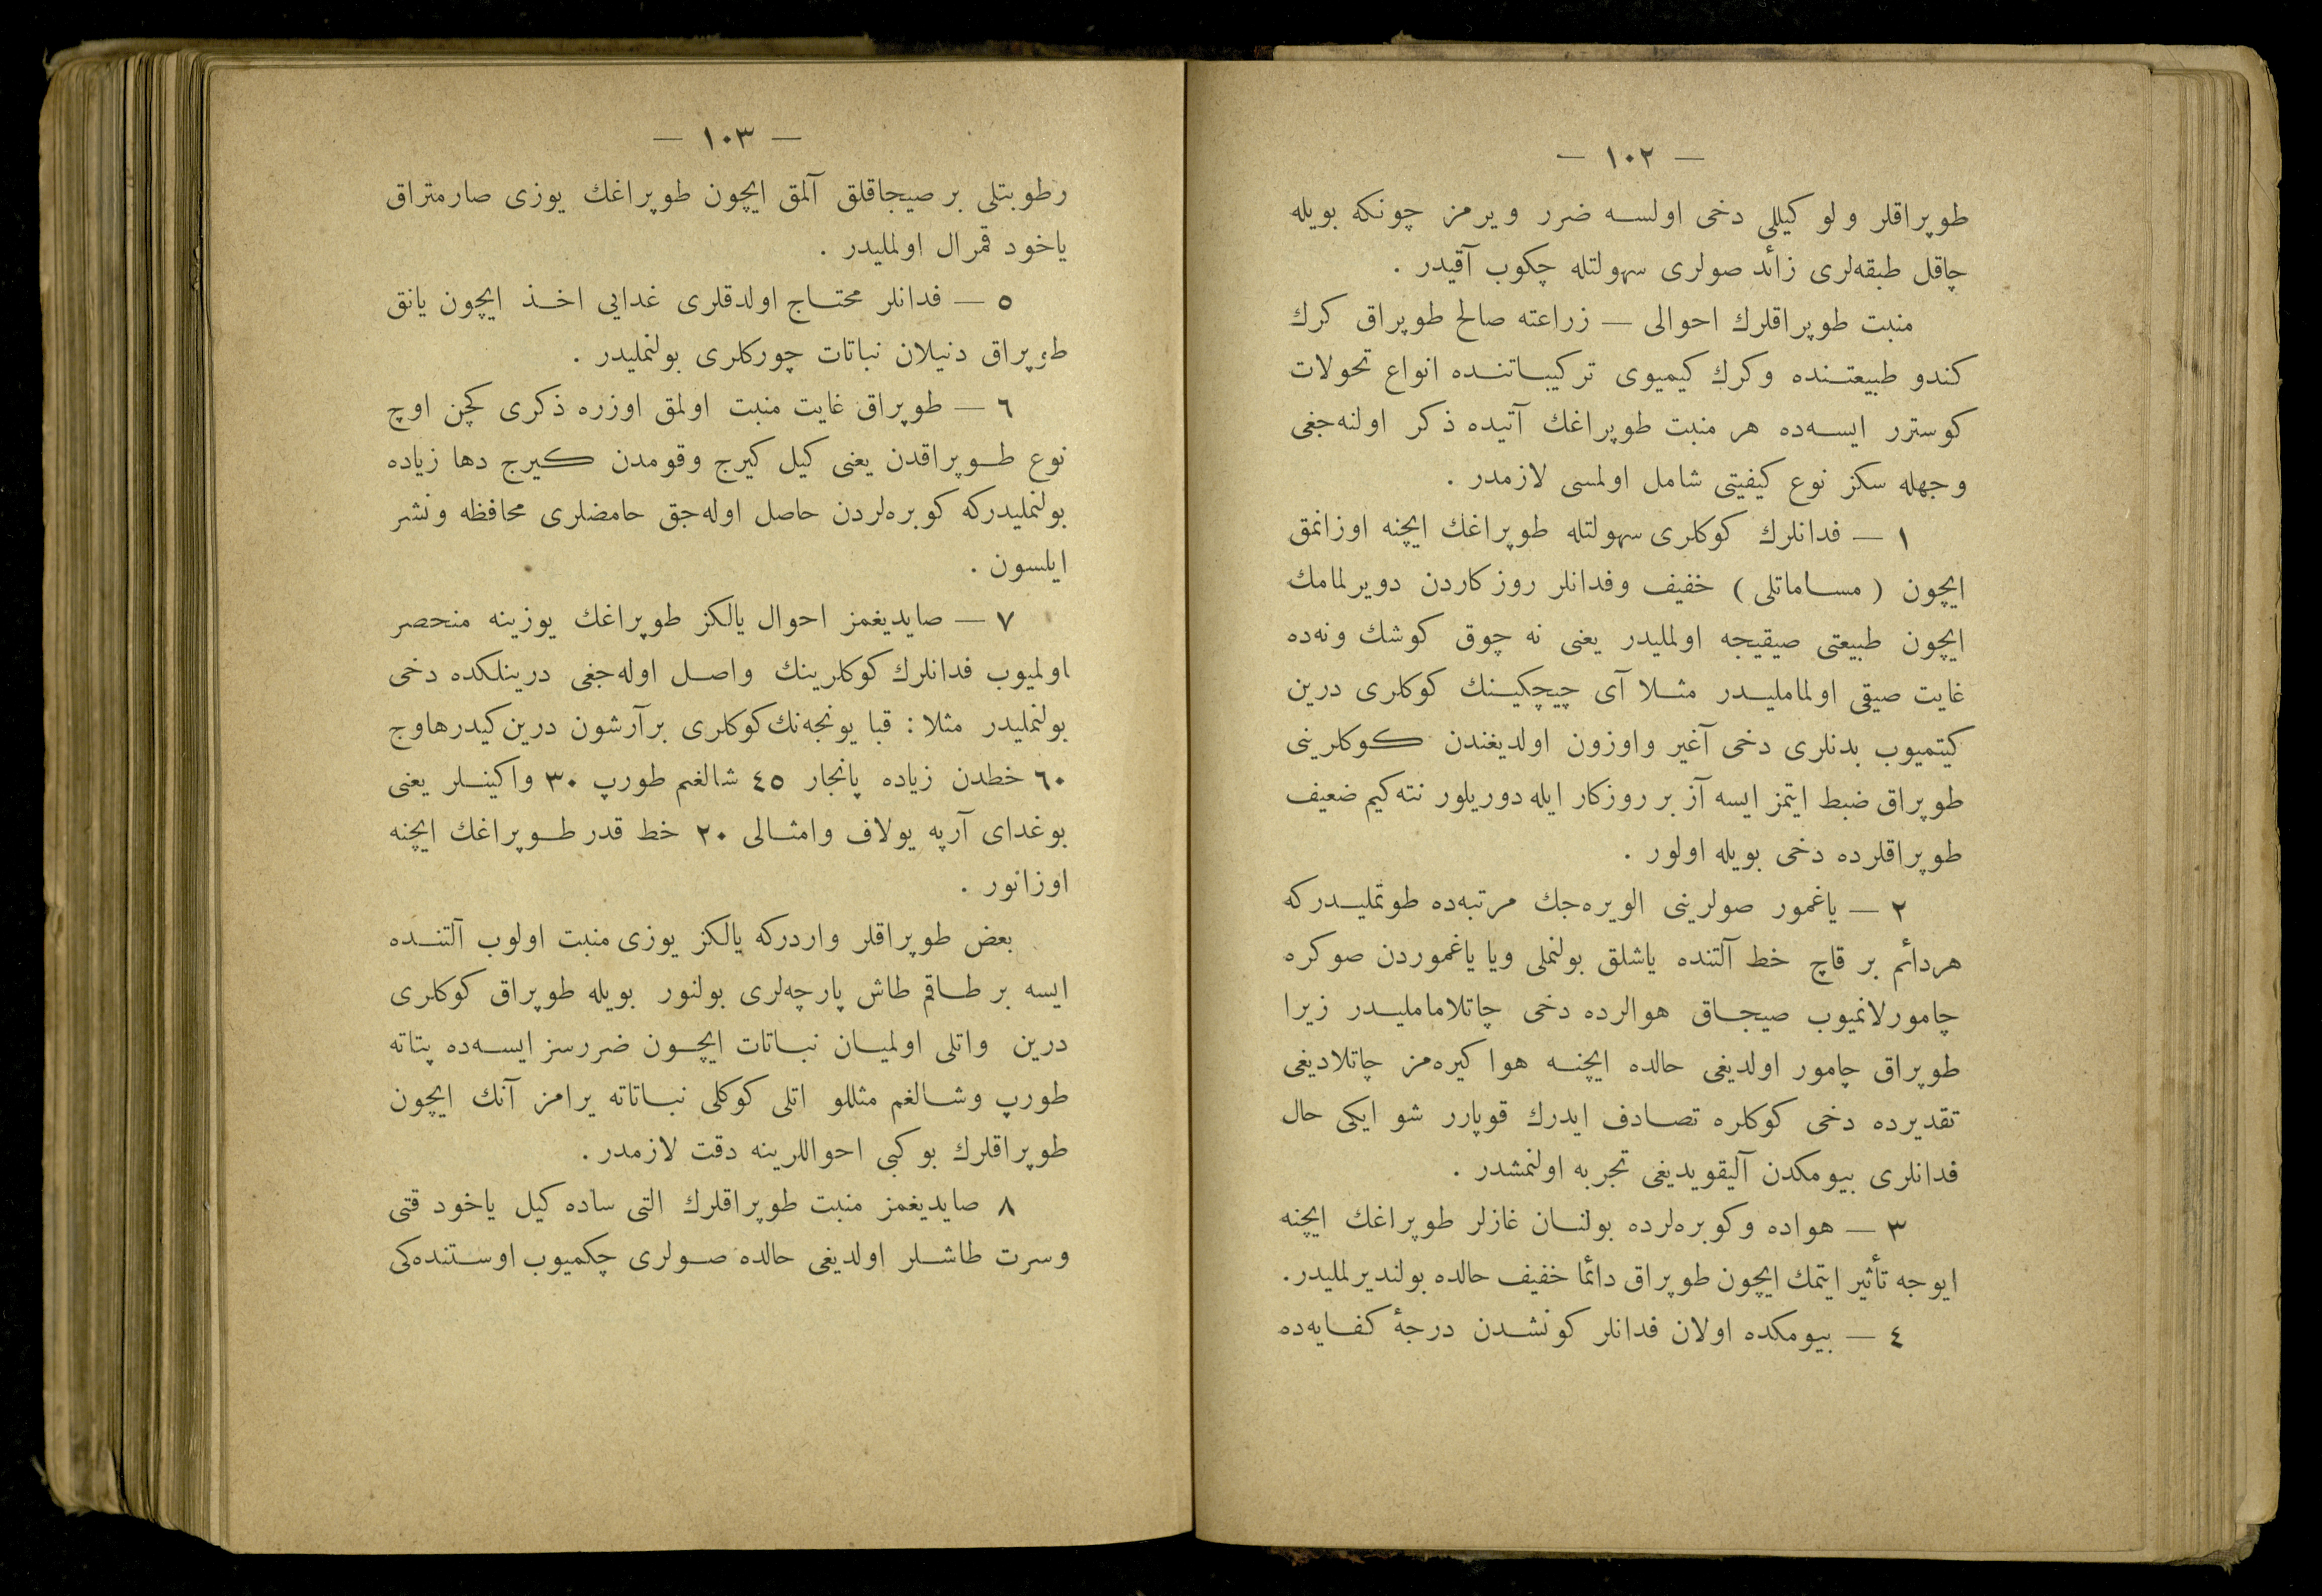 — ١٠٢ —
طوپراقلر ولو كيللی دخی اولسه ضرر ويرمز چونكه بويله
چاقل طبقه‌لری زائد صولری سهولتله چكوب آقيدر .
منبت طوپراقلرك احوالی — زراعته صالح طوپراق كرك
كندو طبيعتنده وكرك كيميوی تركيباتنده انواع تحولات
كوسترر ايسه‌ده هر منبت طوپراغك آتيده ذكر اولنه‌جغی
وجهله سكز نوع كيفيتی شامل اولمسی لازمدر .
١ — فدانلرك كوكلری سهولتله طوپراغك ايچنه اوزانمق
ايچون ( مساماتلی ) خفيف وفدانلر روزكاردن دويرلمامك
ايچون طبيعتی صيقيجه اولمليدر يعنی نه چوق كوشك ونه‌ده
غايت صيقی اولمامليدر مثلا آی چيچكينك كوكلری درين
كيتميوب بدنلری دخی آغير واوزون اولديغندن كوكلرينی
طوپراق ضبط ايتمز ايسه آز بر روزكار ايله دوريلور نته‌كيم ضعيف
طوپراقلرده دخی بويله اولور .
٢ — ياغمور صولرينی الويره‌جك مرتبه‌ده طوتمليدركه
هردائم بر قاچ خط آلتنده ياشلق بولنملی ويا ياغموردن صوكره
چامورلانميوب صيجاق هوالرده دخی چاتلاماملیدر زيرا
طوپراق چامور اولديغی حالده ايچنه هوا كيره‌مز چاتلاديغی
تقديرده دخی كوكلره تصادف ايدرك قوپارر شو ايكی حال
فدانلری بيومكدن آليقويديغی تجربه اولنمشدر .
٣ — هواده وكوبره‌لرده بولنان غازلر طوپراغك ايچنه
ايوجه تأثير ايتمك ايچون طوپراق دائما خفيف حالده بولنديرلمليدر.
٤ — بيومكده اولان فدانلر كونشدن درجهٔ كفايه‌ده
— ١٠٣ —
رطوبتلی بر صيجاقلق آلمق ايچون طوپراغك يوزی صارمتراق
ياخود قمرال اولمليدر .
٥ — فدانلر محتاج اولدقلری غدایی اخذ ايچون يانق
طوپراق دنيلان نباتات چوركلری بولنمليدر .
٦ — طوپراق غايت منبت اولمق اوزره ذكری كچن اوچ
نوع طوپراقدن يعنی كيل كيرج وقومدن كيرج دها زياده
بولنمليدركه كوبره‌لردن حاصل اوله‌جق حامضلری محافظه ونشر
ايلسون .
٧ — صايديغمز احوال يالكز طوپراغك يوزينه منحصر
اولميوب فدانلرك كوكلرينك واصل اوله‌جغی درينلكده دخی
بولنمليدر مثلا : قبا يونجه‌نك كوكلری برآرشون درين كيدرهاوج
٦٠ خطدن زياده پانجار ٤٥ شالغم طورپ ٣٠ واكينلر يعنی
بوغدای آرپه يولاف وامثالی ٢٠ خط قدر طوپراغك ايچنه
اوزانور .
بعض طوپراقلر واردركه يالكز يوزی منبت اولوب آلتنده
ايسه بر طاقم طاش پارچه‌لری بولنور بويله طوپراق كوكلری
درين واتلی اولميان نباتات ايچون ضررسز ايسه‌ده پتاته
طورپ وشالغم مثللو اتلی كوكلی نباتاته يرامز آنك ايچون
طوپراقلرك بو كبی احواللرينه دقت لازمدر .
٨ صايديغمز منبت طوپراقلرك التی ساده كيل ياخود قتی
وسرت طاشلر اولديغی حالده صولری چكميوب اوستنده‌كی